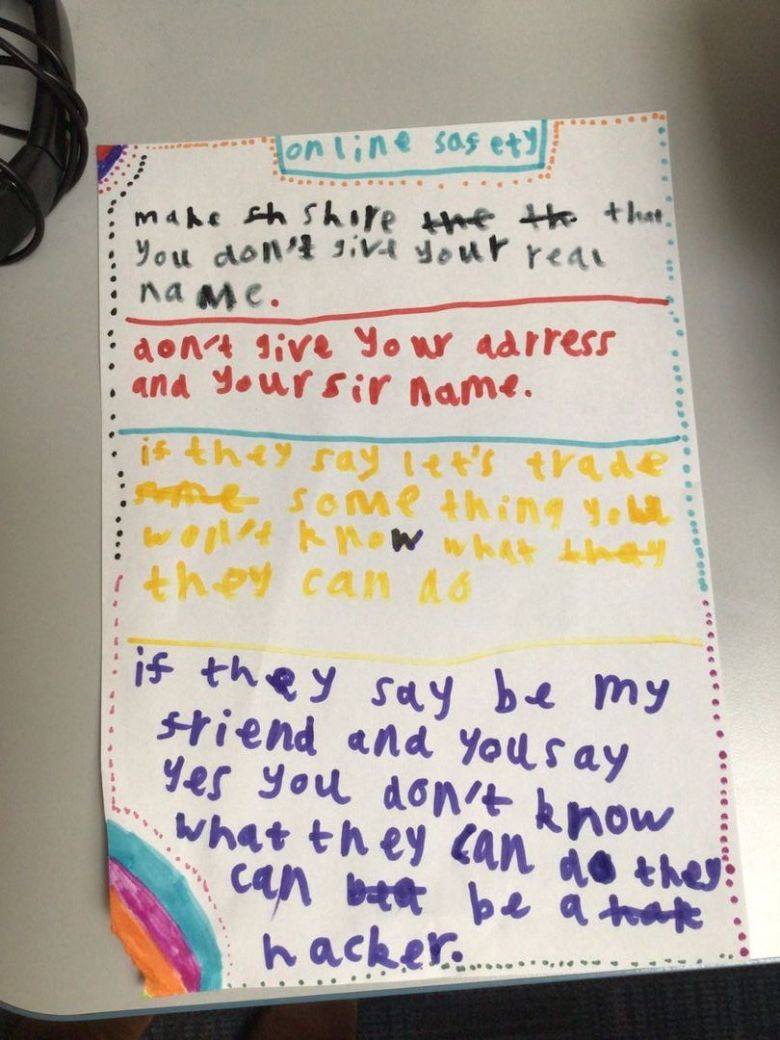 online safety
make sh shire the th that
you don't give your real
name.
don't give your adrress
and your sir name.
if they say let's trade
some some thing you
won't know what they
they can do
if they say be my
friend and you say
yes you don't know
what they can do they
can be a hak
hacker.